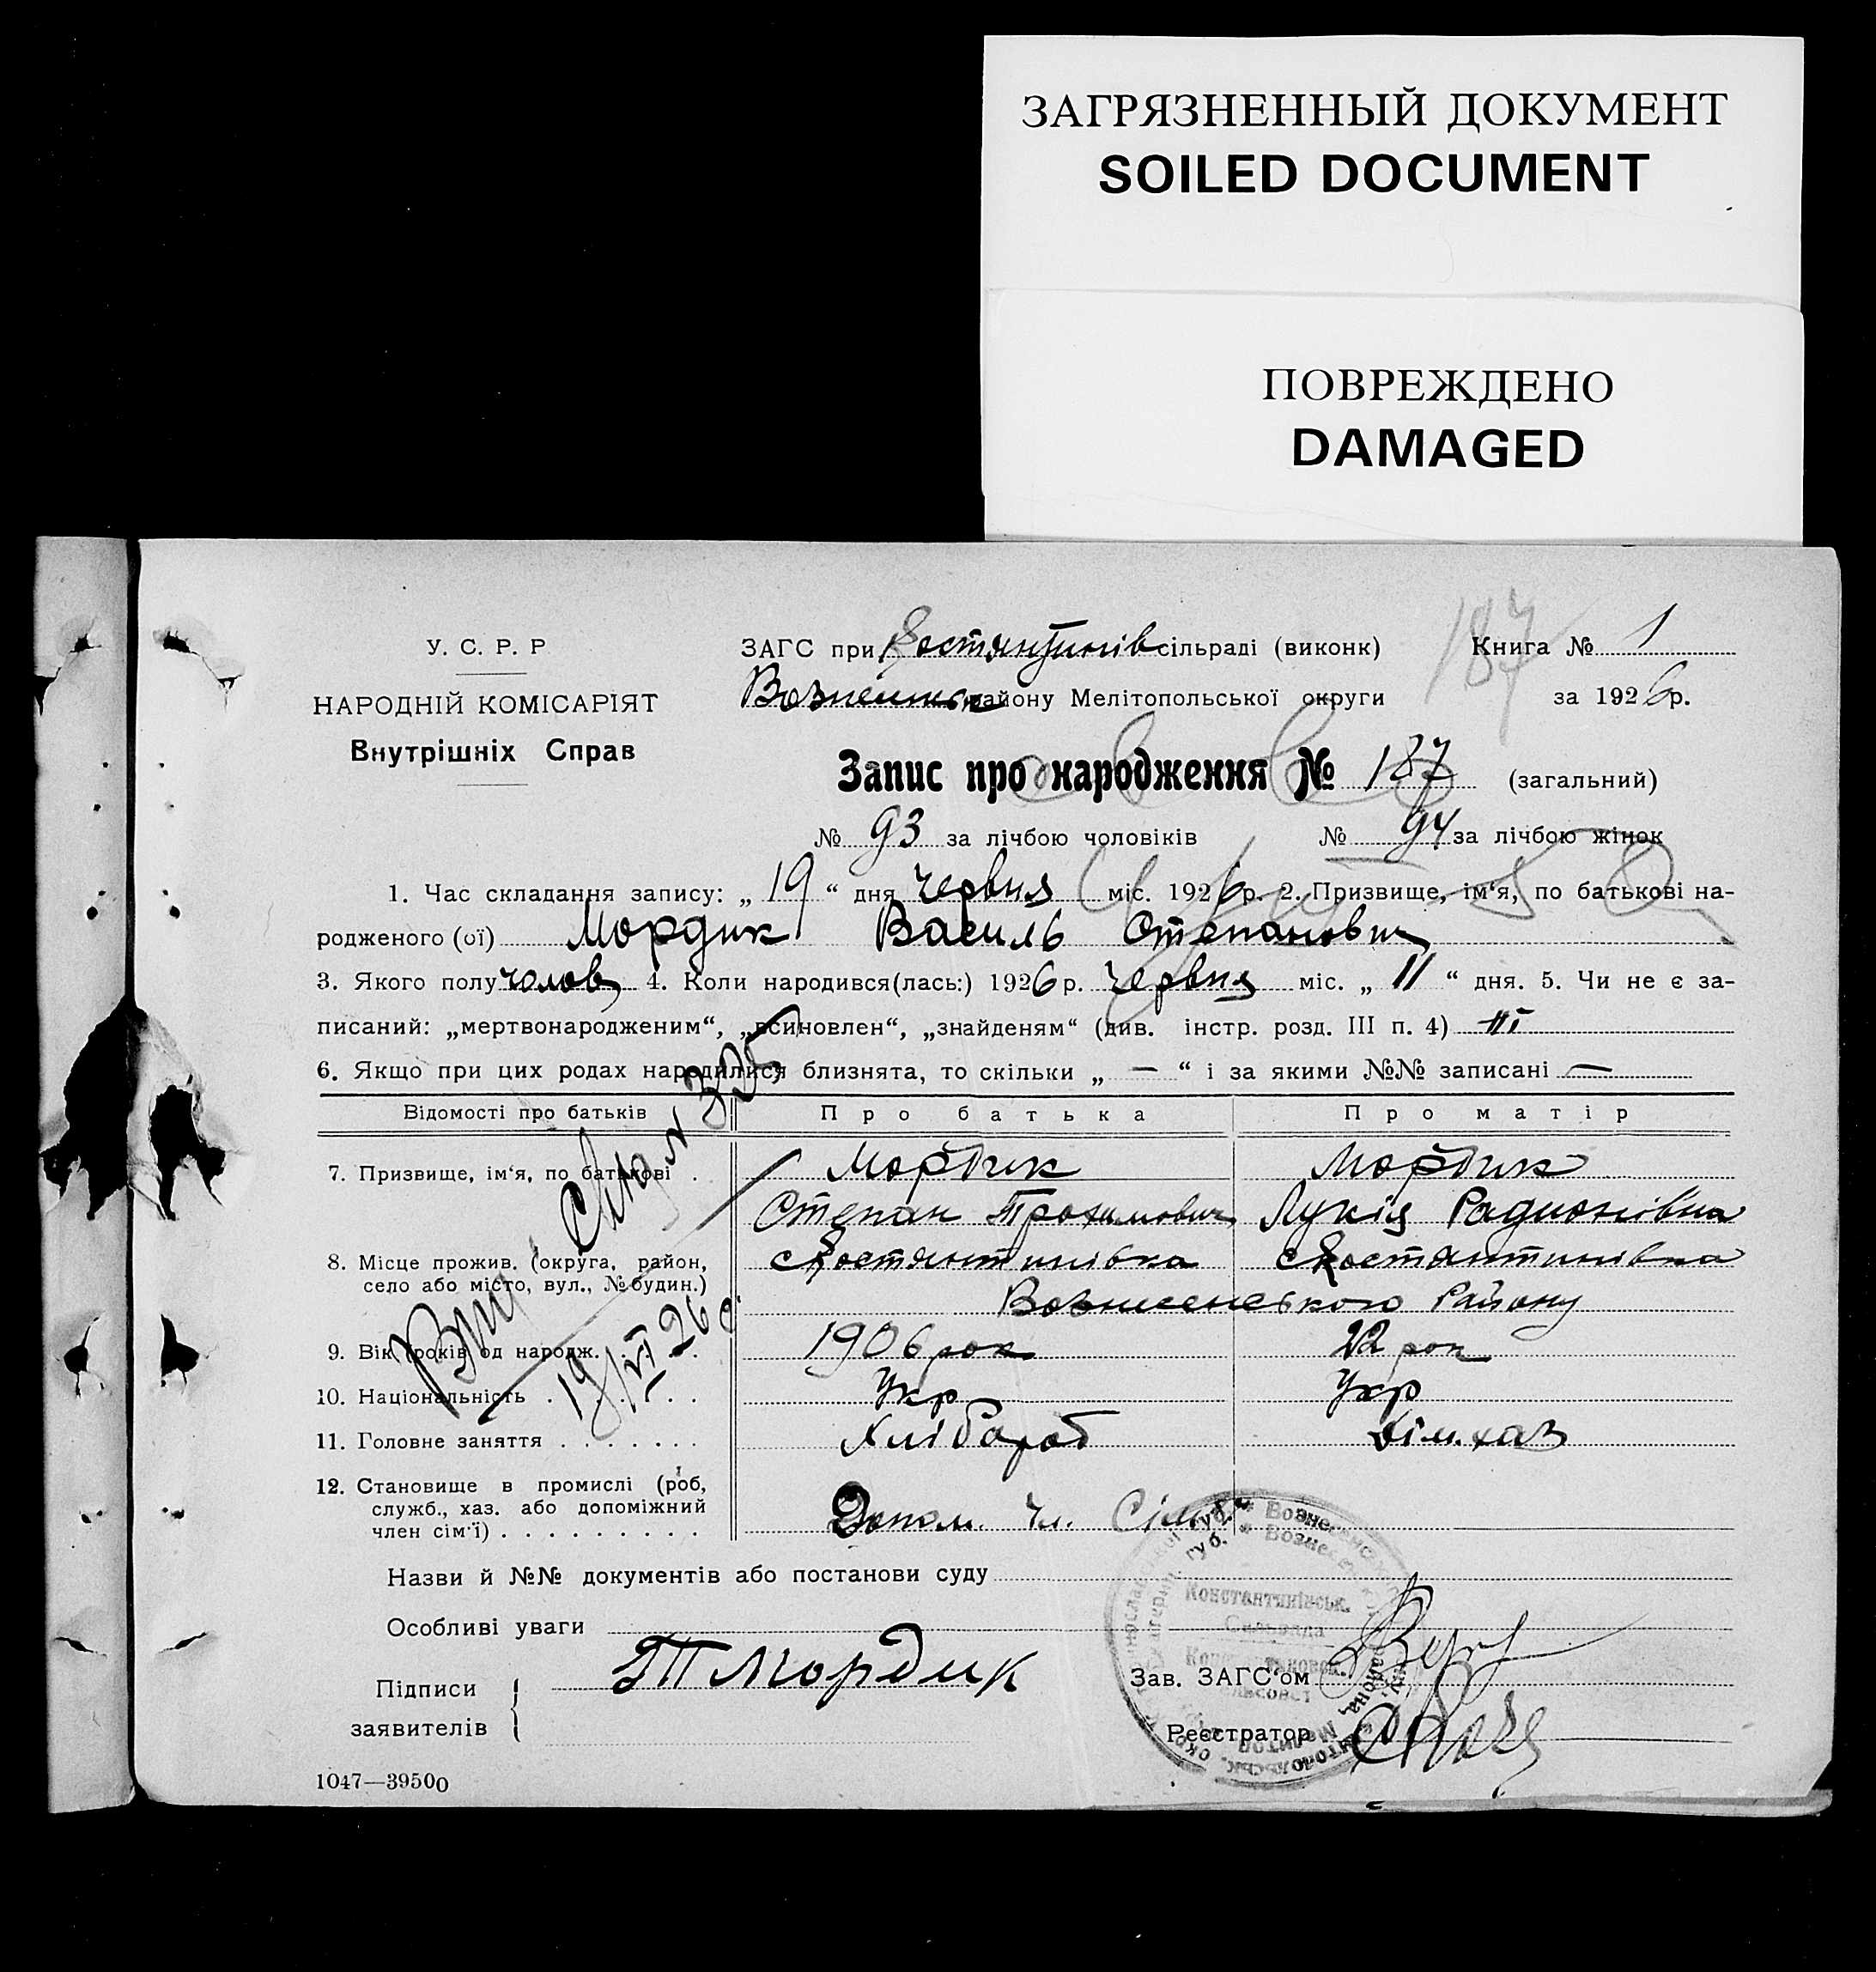 ЗАГРЯЗНЕННЫЙ ДОКУМЕНТ
SOILED DOCUMENT
ПОВРЕЖДЕНО
DAMAGED
У. С. Р. Р
НАРОДНІЙ КОМІСАРІЯТ
Внутрішніх Справ
ЗАГС при Костянтинів сільраді (виконк)
району Мелітопольської округи
187
Книга № 1
за 1926 р.
Запис про народження № 187 (загальний)
№ 93 за лічбою чоловіків № 94 за лічбою жінок
1. Час складання запису: „ 19 “ дня червня міс. 1926 р. 2. Призвище, ім‘я, по батькові на-
родженого (ої) Мордик Василь Степанович
3. Якого полу чолов 4. Коли народився(лась:) 1926 р. червня міс. „ 11 “ дня. 5. Чи не є за-
писаний: „мертвонародженим“, „всиновлен“, „знайденям“ (див. інстр. розд. III п. 4) ні
6. Якщо при цих родах народилися близнята, то скільки „ — “ і за якими №№ записані —
Відомості про батьків Про батька Про матір
7. Призвище, ім‘я, по батькові . Мордик Мордик
Степан Трохимович Лукія Радионівна
8. Місце прожив. (округа, район, с Костянтинівка с Костянтинівка
село або місто, вул., № будин.)
Вознесенського Району
9. Вік (років од народж. . . . 1906 рок 22 рок
10. Національність . . . . . . Укр Укр
11. Головне заняття . . . . . . . Хлібороб Дім. хаз
12. Становище в промислі (роб,
служб., хаз. або допоміжний
член сім‘ї) . . . . . . . . . Допом. чл. Сім
19/VI 26
Назви й №№ документів або постанови суду
Особливі уваги
Підписи
заявителів
Мордик
Зав. ЗАГС‘ом
Реєстратор
Константинівськ.
1047—39500